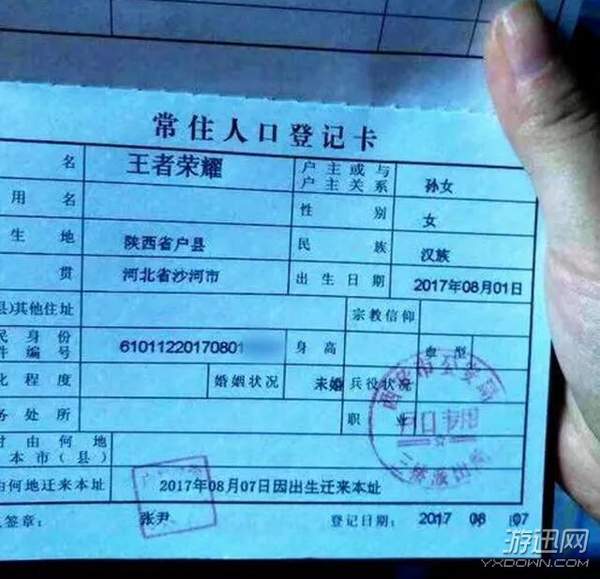 常住人口登记卡
名 王者荣耀 户主或与户主关系 孙女
用名 性别 女
生地 陕西省户县 民族 汉族
贯 河北省沙河市 出生日期 2017年08月01日
县)其他住址 宗教信仰
民身份件编号 61011220170801 身高 血型
化程度 婚姻状况 未婚 兵役状况
务处所 职业
由何地
本市(县)
由何地迁来本址 2017年08月07日因出生迁来本址
签章： 张尹 登记日期： 2017 08 07
西安市公安局
户口专用
派出所
游迅网
YXDOWN.COM